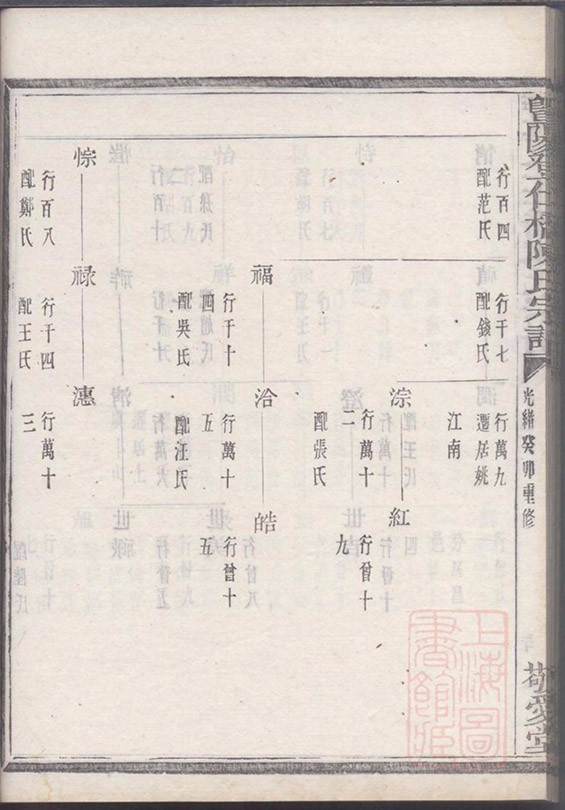 暨陽登仕橋陳氏宗譜
光緒癸卯重修
敬愛堂
行百四
配范氏
行千七
配錢氏
行萬九
遷居姚
江南
淙
行萬十
一
配張氏
紅
行曾十
九
福
行千十
四
配吳氏
洽
行萬十
五
配汪氏
皓
行曾十
五
悰
行百八
配鄭氏
禄
行千四
配王氏
潓
行萬十
三
上海圖
書館藏